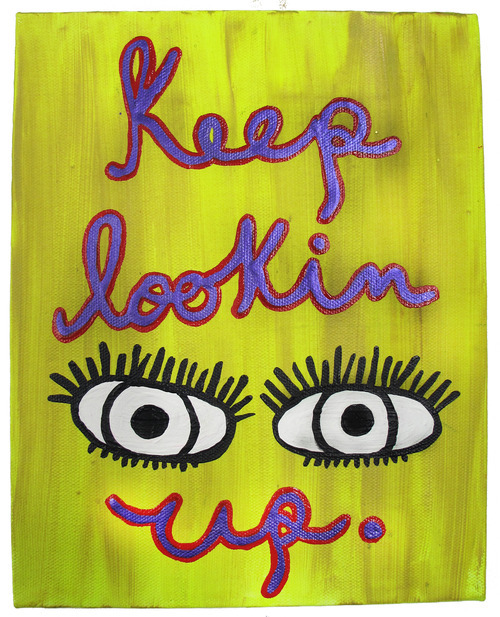 Keep
lookin
up.